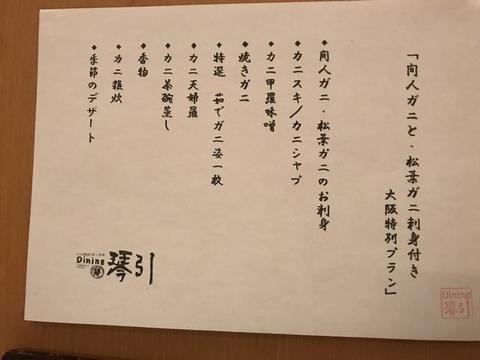 「間人ガニと・松葉ガニ刺身付き
大阪特別プラン」
◆間人ガニ・松葉ガニのお刺身
◆カニスキ／カニシャブ
◆カニ甲羅味噌
◆焼きガニ
◆特選 茹でガニ姿一枚
◆カニ天婦羅
◆カニ茶碗蒸し
◆香物
◆カニ雑炊
◆季節のデザート
Dining
琴引
Dining
琴引